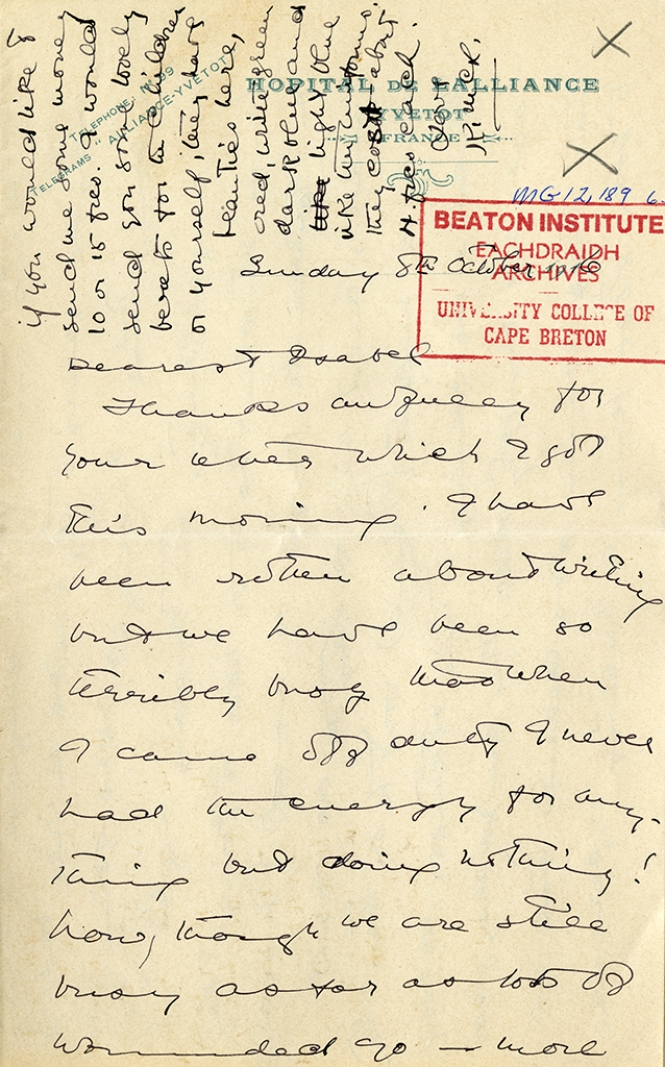 HOPITAL DE L'ALLIANCE
YVETOT
FRANCE
TELEPHONE: No 39
TELEGRAMS: ALLIANCE-YVETOT
MG 12, 189
BEATON INSTITUTE
EACHDRAIDH
ARCHIVES
UNIVERSITY COLLEGE OF
CAPE BRETON
Sunday 8th October 1916
Dearest Isabel
Thanks awfully for
your letter which I got
this morning. I have
been rotten about writing
but we have been so
terribly busy that when
I came off duty I never
had the energy for any-
thing but doing nothing!
Now, though we are still
busy as far as lots of
wounded go — more
if you would like to
send me some money
10 or 15 frcs. I would
send you some lovely
berets for the children
or yourself, they have
beauties here,
red, white, green
dark blue and
light blue
like
they cost about
4 frcs each.
Love